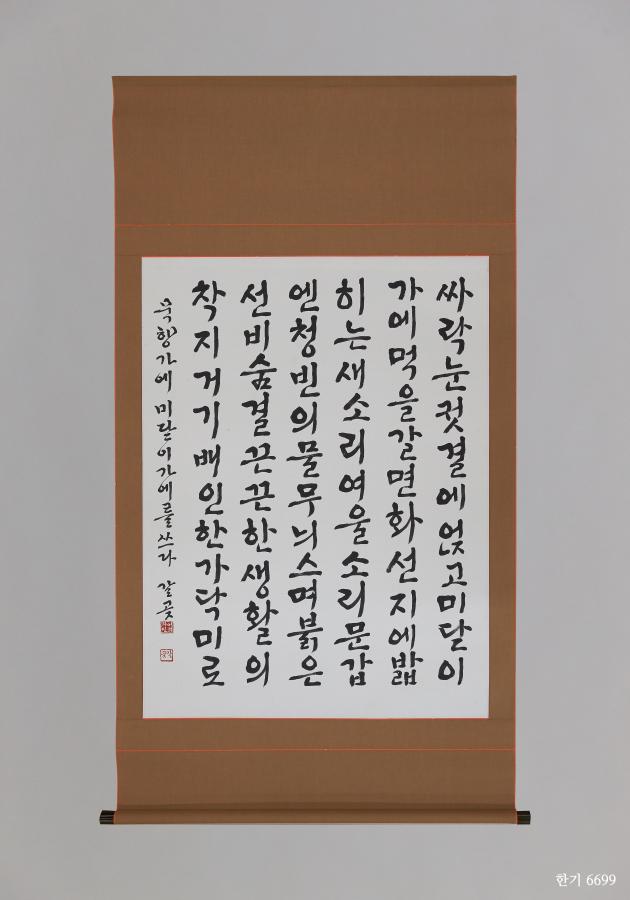 싸락눈귓결에얹고미닫이
가에먹을갈면화선지에밟
히는새소리여울소리문갑
엔청빈의물무늬스며붉은
선비숨결끈끈한생활의
착지거기배인한가닥미로
묵행가에 미닫이가에를 쓰다 갈곶
한기 6699